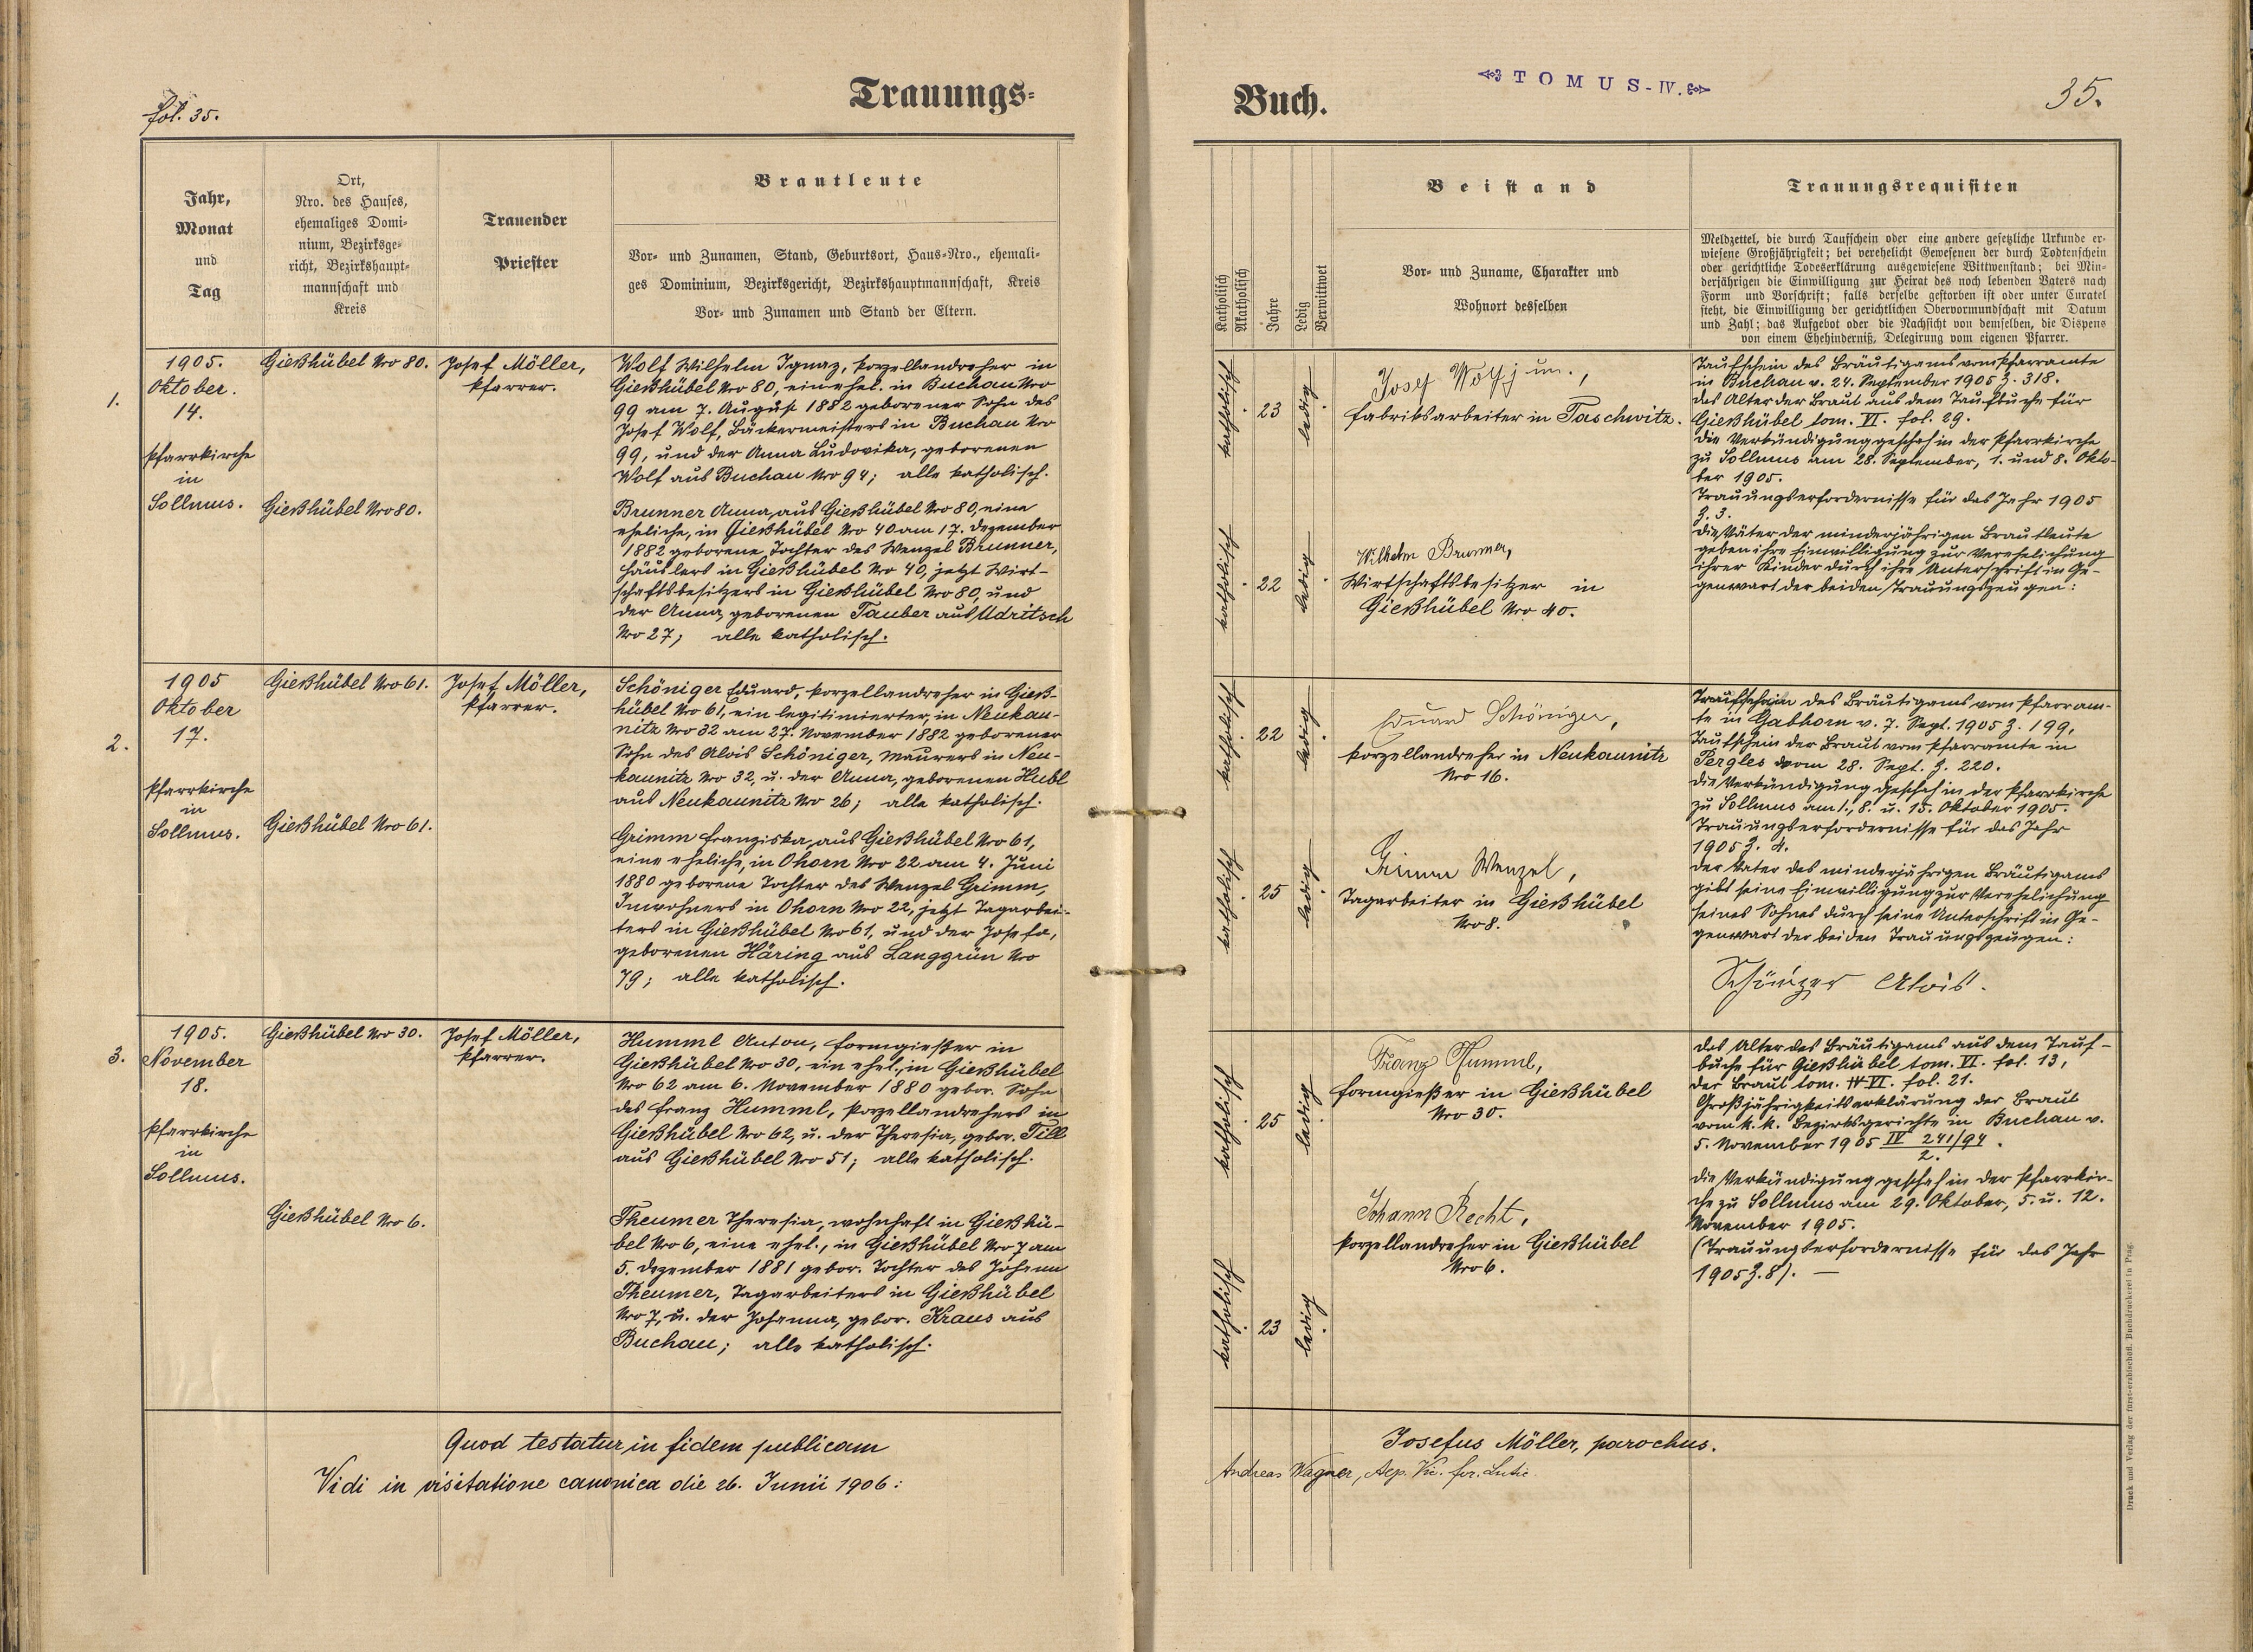 fol. 35.
Trauungs-
Jahr,
Monat
und
Tag
Ort,
Nro. des Hauses,
ehemaliges Domi-
nium, Bezirksge-
richt, Bezirkshaupt-
mannschaft und
Kreis
Trauender
Priester
Brautleute
Vor- und Zunamen, Stand, Geburtsort, Haus-Nro., ehemali-
ges Dominium, Bezirksgericht, Bezirkshauptmannschaft, Kreis
Vor- und Zunamen und Stand der Eltern.
1.
1905.
Oktober.
14.
Pfarrkirche
in
Sollmus.
Gießhübel Nro 80.
Gießhübel Nro 80.
Josef Möller,
Pfarrer.
Wolf Wilhelm Ignaz, Porzellandreher in
Gießhübel Nro 80, ein ehel. in Buchau Nro
99 am 7. August 1882 geborener Sohn des
Josef Wolf, Bäckermeisters in Buchau Nro
99, und der Anna Ludovika, geborenen
Wolf aus Buchau Nro 94; alle katholisch.
Brunner Anna, aus Gießhübel Nro 80, eine
eheliche, in Gießhübel Nro 40 am 17. Dezember
1882 geborene Tochter des Wenzel Brunner,
Häuslers in Gießhübel Nro 40, jetzt Wirt-
schaftsbesitzers in Gießhübel Nro 80, und
der Anna, geborenen Tauber aus Udritsch
Nro 27; alle katholisch.
2.
1905
Oktober
17.
Pfarrkirche
in
Sollmus.
Gießhübel Nro 61.
Gießhübel Nro 61.
Josef Möller,
Pfarrer.
Schöniger Eduard, Porzellandreher in Gieß-
hübel Nro 61, ein legitimierter, in Neukau-
nitz Nro 32 am 27. November 1882 geborener
Sohn des Alois Schöniger, Maurers in Neu-
kaunitz Nro 32, u. der Anna, geborenen Hubl
aus Neukaunitz Nro 26; alle katholisch.
Grimm Franziska, aus Gießhübel Nro 61,
eine eheliche, in Ohorn Nro 22 am 4. Juni
1880 geborene Tochter des Wenzel Grimm,
Inwohners in Ohorn Nro 22, jetzt Tagarbei-
ters in Gießhübel Nro 61, und der Josefa,
geborenen Häring aus Langgrün Nro
79; alle katholisch.
3.
1905.
November
18.
Pfarrkirche
in
Sollmus.
Gießhübel Nro 30.
Gießhübel Nro 6.
Josef Möller,
Pfarrer.
Humml Anton, Formgießer in
Gießhübel Nro 30, ein ehel., in Gießhübel
Nro 62 am 6. November 1880 gebor. Sohn
des Franz Humml, Porzellandrehers in
Gießhübel Nro 62, u. der Theresia, gebor. Till
aus Gießhübel Nro 51; alle katholisch.
Theumer Theresia, wohnhaft in Gießhü-
bel Nro 6, eine ehel., in Gießhübel Nro 7 am
5. Dezember 1881 gebor. Tochter des Johann
Theumer, Tagarbeiters in Gießhübel
Nro 7, u. der Johanna, gebor. Kraus aus
Buchau; alle katholisch.
Quod testatur in fidem publicam
Vidi in visitatione canonica die 26. Junii 1906:
Buch.
TOMUS-IV.
35.
Katholisch
Akatholisch
Jahre
Ledig
Verwittwet
Beistand
Vor- und Zuname, Charakter und
Wohnort desselben
Trauungsrequisiten
Meldzettel, die durch Taufschein oder eine andere gesetzliche Urkunde er-
wiesene Großjährigkeit; bei verehelicht Gewesenen der durch Todtenschein
oder gerichtliche Todeserklärung ausgewiesene Wittwenstand; bei Min-
derjährigen die Einwilligung zur Heirat des noch lebenden Vaters nach
Form und Vorschrift; falls derselbe gestorben ist oder unter Curatel
steht, die Einwilligung der gerichtlichen Obervormundschaft mit Datum
und Zahl; das Aufgebot oder die Nachsicht von demselben, die Dispens
von einem Ehehinderniß, Delegirung vom eigenen Pfarrer.
katholisch.
23
ledig.
Josef Wolf jun.,
Fabriksarbeiter in Taschwitz.
katholisch.
22
ledig.
Wilhelm Brunner,
Wirtschaftsbesitzer in
Gießhübel Nro 40.
Taufschein des Bräutigams vom Pfarramte
in Buchau v. 24. September 1905 Z. 318.
Das Alter der Braut aus dem Taufbuche für
Gießhübel tom. VI. fol. 29.
Die Verkündigung geschah in der Pfarrkirche
zu Sollmus am 28. September, 1. und 8. Okto-
ber 1905.
Trauungserfordernisse für das Jahr 1905
Z. 3.
Die Väter der minderjährigen Brautleute
geben ihre Einwilligung zur Verehelichung
ihrer Kinder durch ihre Unterschrift in Ge-
genwart der beiden Trauungszeugen:
katholisch.
22
ledig.
Eduard Schöniger,
Porzellandreher in Neukaunitz
Nro 16.
katholisch.
25
ledig.
Grimm Wenzel,
Tagarbeiter in Gießhübel
Nro 8.
Taufschein des Bräutigams vom Pfarram-
te in Gabhorn v. 7. Sept. 1905 Z. 199,
Taufschein der Braut vom Pfarramte in
Pergles vom 28. Sept. Z. 220.
Die Verkündigung geschah in der Pfarrkirche
zu Sollmus am 1., 8. u. 15. Oktober 1905.
Trauungserfordernisse für das Jahr
1905 Z. 4.
Der Vater des minderjährigen Bräutigams
gibt seine Einwilligung zur Verehelichung
seines Sohnes durch seine Unterschrift in Ge-
genwart der beiden Trauungszeugen:
Alois.
katholisch.
25
ledig.
Franz Humml,
Formgießer in Gießhübel
Nro 30.
katholisch.
23
ledig.
Johann Recht,
Porzellandreher in Gießhübel
Nro 6.
Das Alter des Bräutigams aus dem Tauf-
buche für Gießhübel tom. VI. fol. 13,
der Braut tom. VI. fol. 21.
Großjährigkeitserklärung der Braut
vom k. k. Bezirksgerichte in Buchau v.
5. November 1905 IV 241/94
2.
Die Verkündigung geschah in der Pfarrkir-
che zu Sollmus am 29. Oktober, 5. u. 12.
November 1905.
(Trauungserfordernisse für das Jahr
1905 Z. 8). —
Josefus Möller, parochus.
Andreas Wagner, Aep. Vic. for.
Druck und Verlag der fürst-erzbischöfl. Buchdruckerei in Prag.